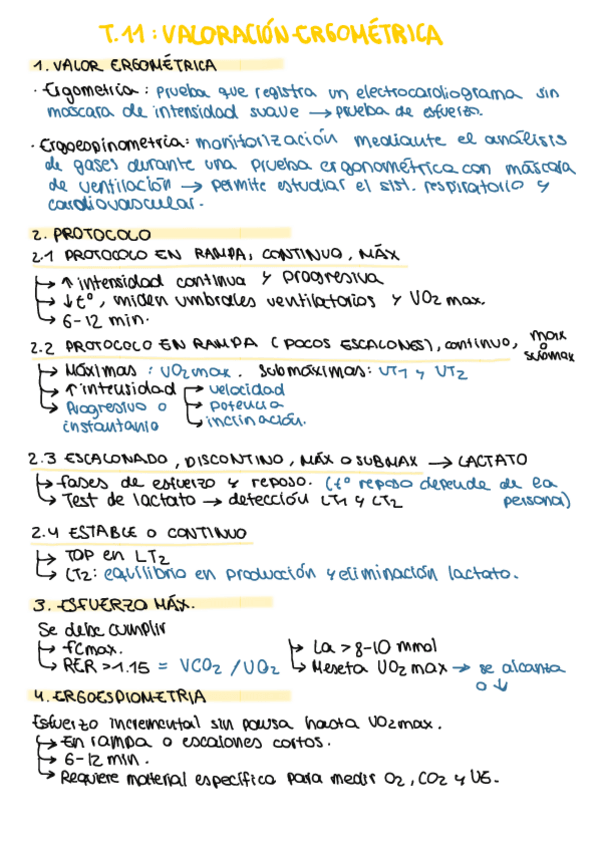 T.11: VALORACIÓN ERGOMÉTRICA
1. VALOR ERGOMÉTRICA
· Ergometría: prueba que registra un electrocardiograma sin
mascara de intensidad suave → prueba de esfuerzo.
· Ergoespinometria: monitorización mediante el análisis
de gases durante una prueba ergonométrica con máscara
de ventilación → permite estudiar el sist. respiratorio y
cardiovascular.
2. PROTOCOLO
2.1 PROTOCOLO EN RAMPA, CONTINUO, MÁX
↳ ↑ intensidad continua y progresiva
↳ ↓ tº, miden umbrales ventilatorios y VO2 max.
↳ 6-12 min.
2.2 PROTOCOLO EN RAMPA (POCOS ESCALONES), continuo, max o submax
↳ Máximas: VO2max. Submáximas: VT1 y VT2
↳ ↑ intensidad → velocidad
↳ Progresivo o → potencia
instantanio ↳ inclinación.
2.3 ESCALONADO, DISCONTINO, MÁX O SUBMAX → LACTATO
↳ fases de esfuerzo y reposo. (tº reposo depende de la
↳ Test de lactato → detección LT1 y LT2 persona)
2.4 ESTABLE O CONTINUO
↳ TOP en LT2
↳ LT2: equilibrio en producción y eliminación lactato.
3. ESFUERZO MÁX.
Se debe cumplir
↳ fCmax. ↳ La > 8-10 mmol
↳ RER > 1.15 = VCO2 / VO2 ↳ Meseta VO2 max → se alcanza
o ↓
4. ERGOESPIOMETRIA
Esfuerzo incremental sin pausa hasta VO2max.
↳ En rampa o escalones cortos.
↳ 6-12 min.
↳ Requiere material específica para medir O2, CO2 y VE.